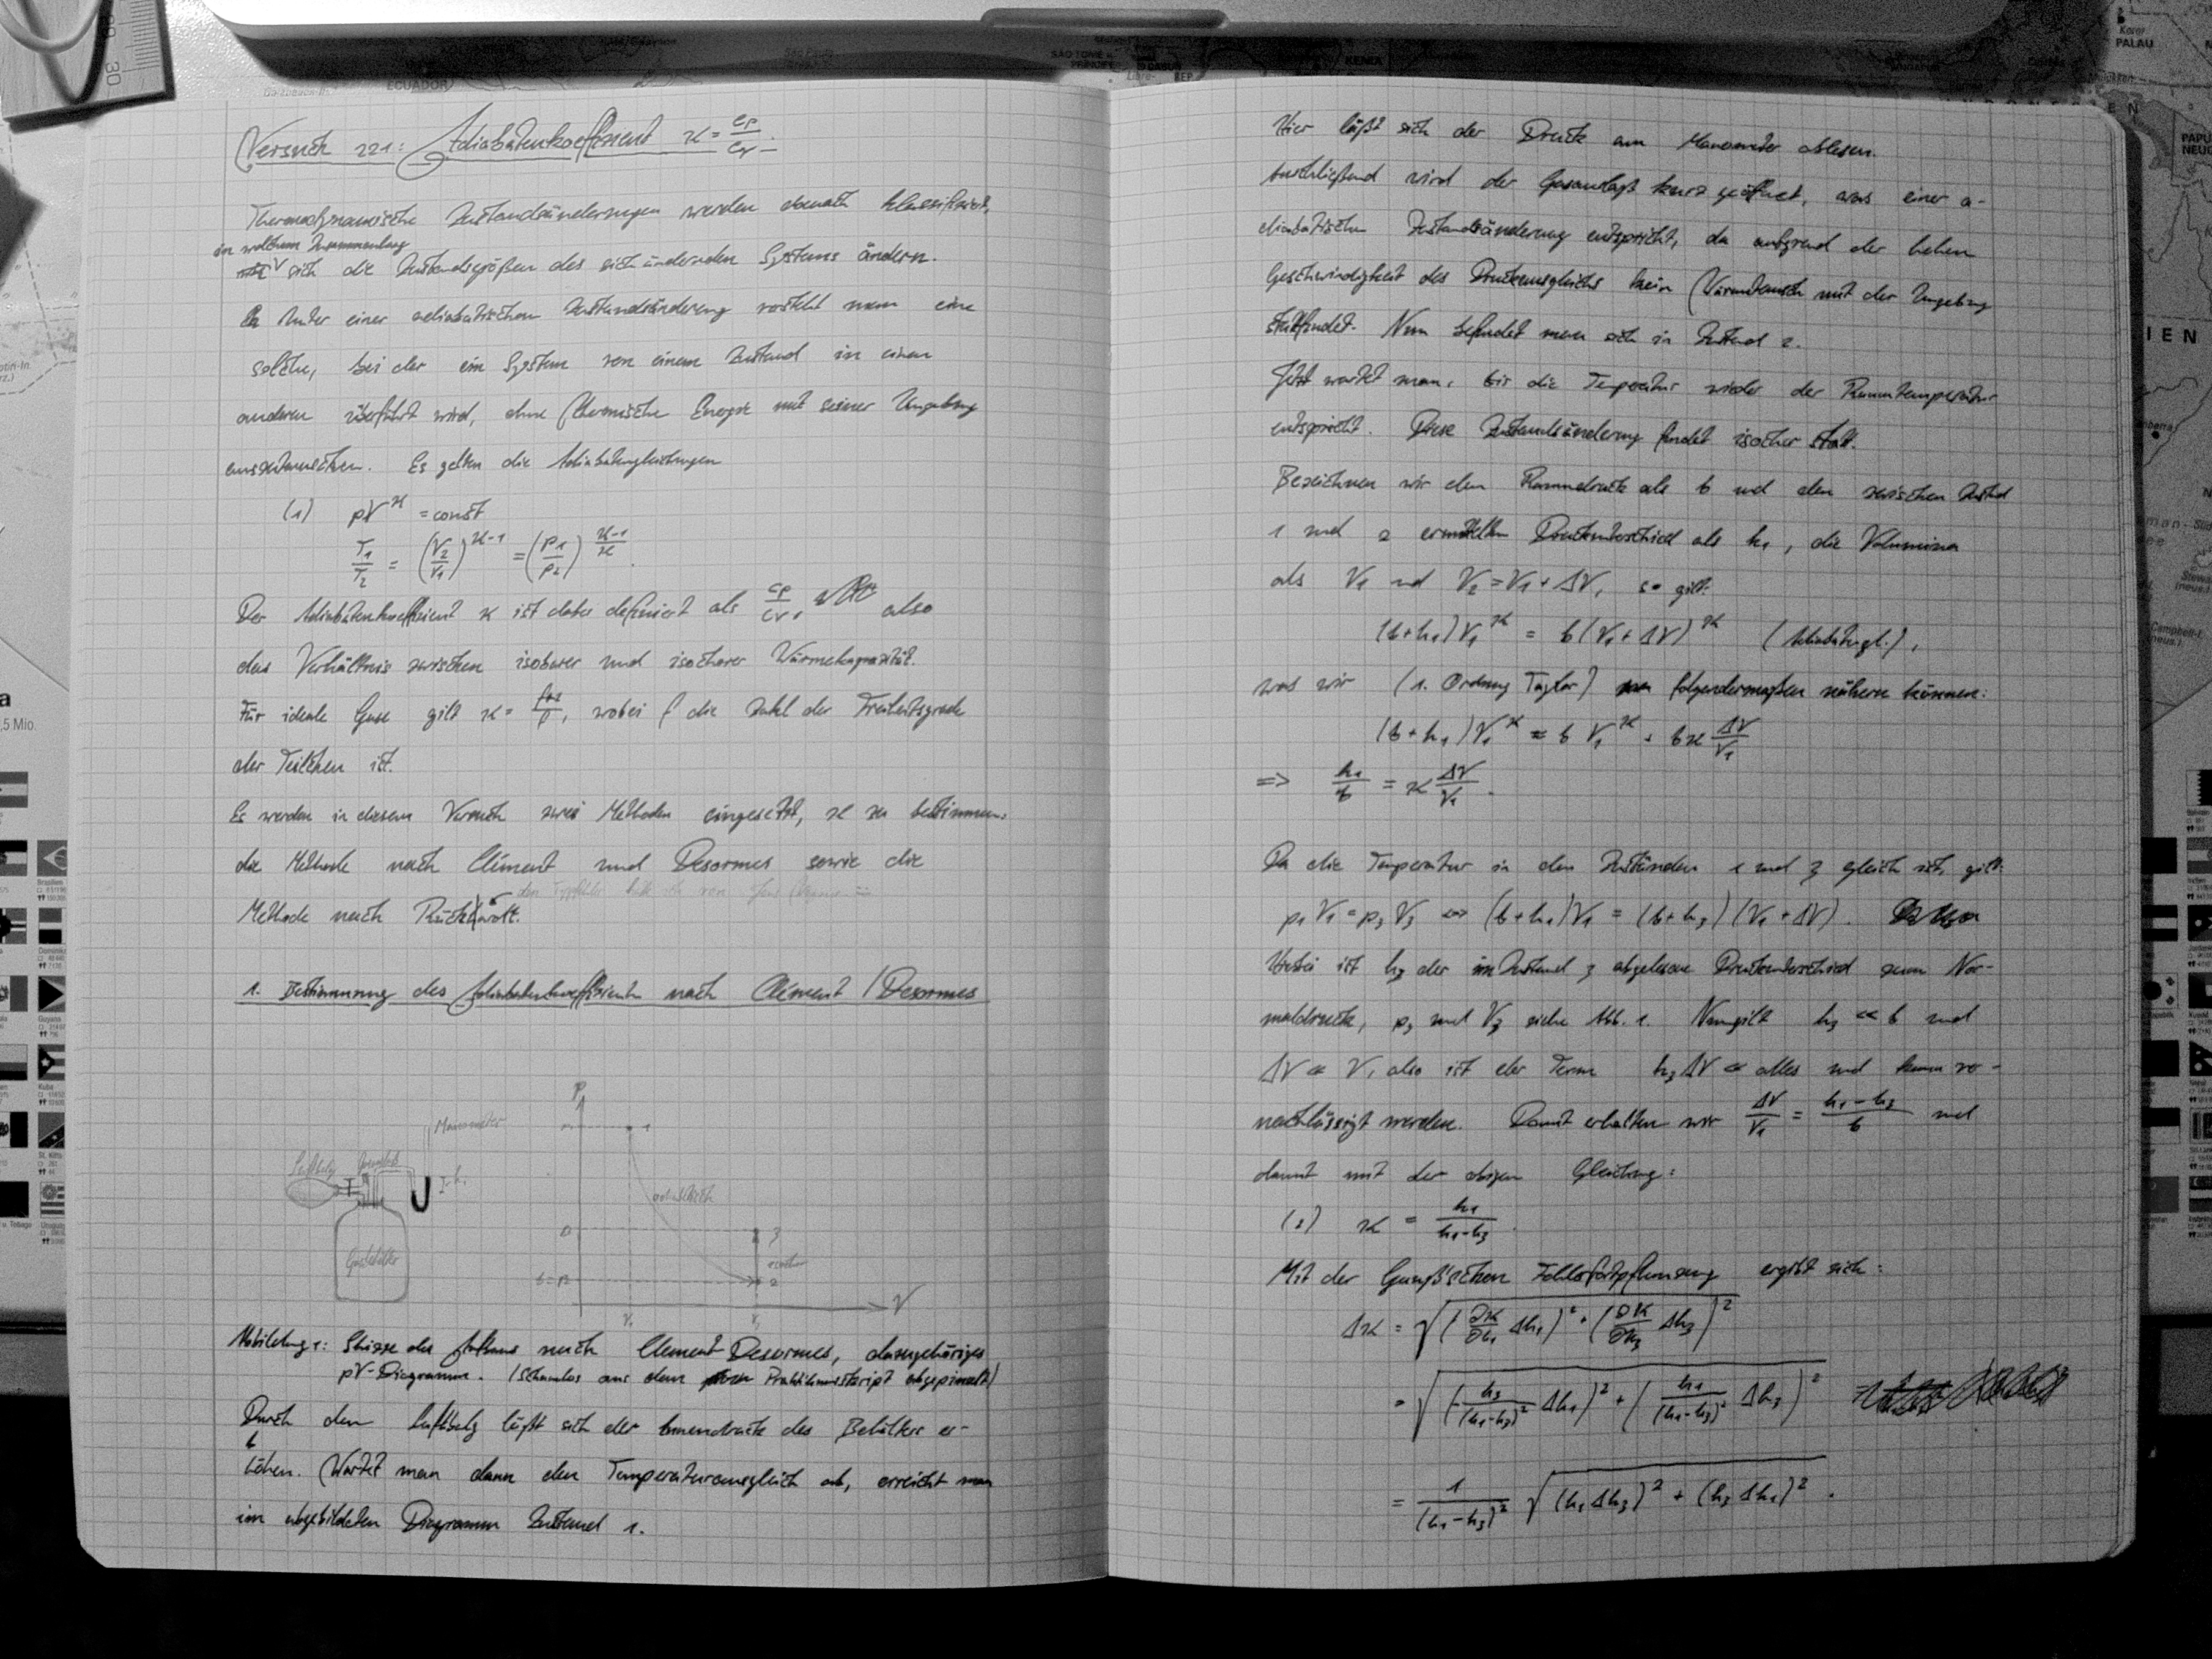 Versuch 221: Adiabatenkoeffizient ϰ = cp/cv
Thermodynamische Zustandsänderungen werden danach klassifiziert,
in welchem Zusammenhang
sich die Zustandsgrößen des sich ändernden Systems ändern.
Unter einer adiabatischen Zustandsänderung versteht man eine
solche, bei der ein System von einem Zustand in einen
anderen überführt wird, ohne thermische Energie mit seiner Umgebung
auszutauschen. Es gelten die Adiabatengleichungen
(1) pV^ϰ = const
T1/T2 = (V2/V1)^(ϰ-1) = (p1/p2)^((ϰ-1)/ϰ).
Der Adiabatenkoeffizient ϰ ist dabei definiert als cp/cv, also
das Verhältnis zwischen isobarer und isochorer Wärmekapazität.
Für ideale Gase gilt ϰ = (f+2)/f, wobei f die Zahl der Freiheitsgrade
der Teilchen ist.
Es werden in diesem Versuch zwei Methoden eingesetzt, ϰ zu bestimmen:
die Methode nach Clément und Desormes sowie die
Methode nach Rüchardt.
1. Bestimmung des Adiabatenkoeffizienten nach Clément / Desormes
P
Manometer
1
Luftbalg
adiabatisch
3
Gasbehälter
b=p2
2
V
V1
V3
Abbildung 1: Skizze des Aufbaus nach Clement Desormes, dazugehöriges
pV-Diagramm. (Schamlos aus dem Praktikumsskript abgepinselt)
Durch den Luftbalg läßt sich der Innendruck des Behälters er-
höhen. Wartet man dann den Temperaturausgleich ab, erreicht man
im abgebildeten Diagramm Zustand 1.
Hier läßt sich der Druck am Manometer ablesen.
Anschließend wird der Gasauslaß kurz geöffnet, was einer a-
diabatischen Zustandsänderung entspricht, da aufgrund der hohen
Geschwindigkeit des Druckausgleichs kein Wärmetausch mit der Umgebung
stattfindet. Nun befindet man sich in Zustand 2.
Jetzt wartet man, bis die Temperatur wieder der Raumtemperatur
entspricht. Diese Zustandsänderung findet isochor statt.
Bezeichnen wir den Raumdruck als b und den zwischen Zustand
1 und 2 ermittelten Druckunterschied als h1, die Volumina
als V1 und V2 = V1 + ΔV, so gilt:
(b+h1)V1^ϰ = b(V1+ΔV)^ϰ (Adiabatengl.),
was wir (1. Ordnung Taylor) folgendermaßen nähern können:
(b+h1)V1^ϰ ≈ b V1^ϰ + bϰ ΔV/V1
=> h1/b = ϰ ΔV/V1.
Da die Temperatur in den Zuständen 1 und 3 gleich ist, gilt:
p1V1 = p3V3 <=> (b+h1)V1 = (b+h3)(V1+ΔV).
Hierbei ist h3 der im Zustand 3 abgelesene Druckunterschied zum Nor-
maldruck, p3 und V3 siehe Abb. 1. Nun gilt h3 << b und
ΔV << V, also ist der Term h3ΔV << alles und kann ver-
nachlässigt werden. Damit erhalten wir ΔV/V1 = (h1-h3)/b und
damit mit der obigen Gleichung:
(2) ϰ = h1/(h1-h3).
Mit der Gauß'schen Fehlerfortpflanzung ergibt sich:
Δϰ = √((∂ϰ/∂h1 Δh1)² + (∂ϰ/∂h3 Δh3)²)
= √((-h3/(h1-h3)² Δh1)² + (h1/(h1-h3)² Δh3)²)
= 1/(h1-h3)² √((h1Δh3)² + (h3Δh1)²).
ECUADOR
KENIA
PALAU